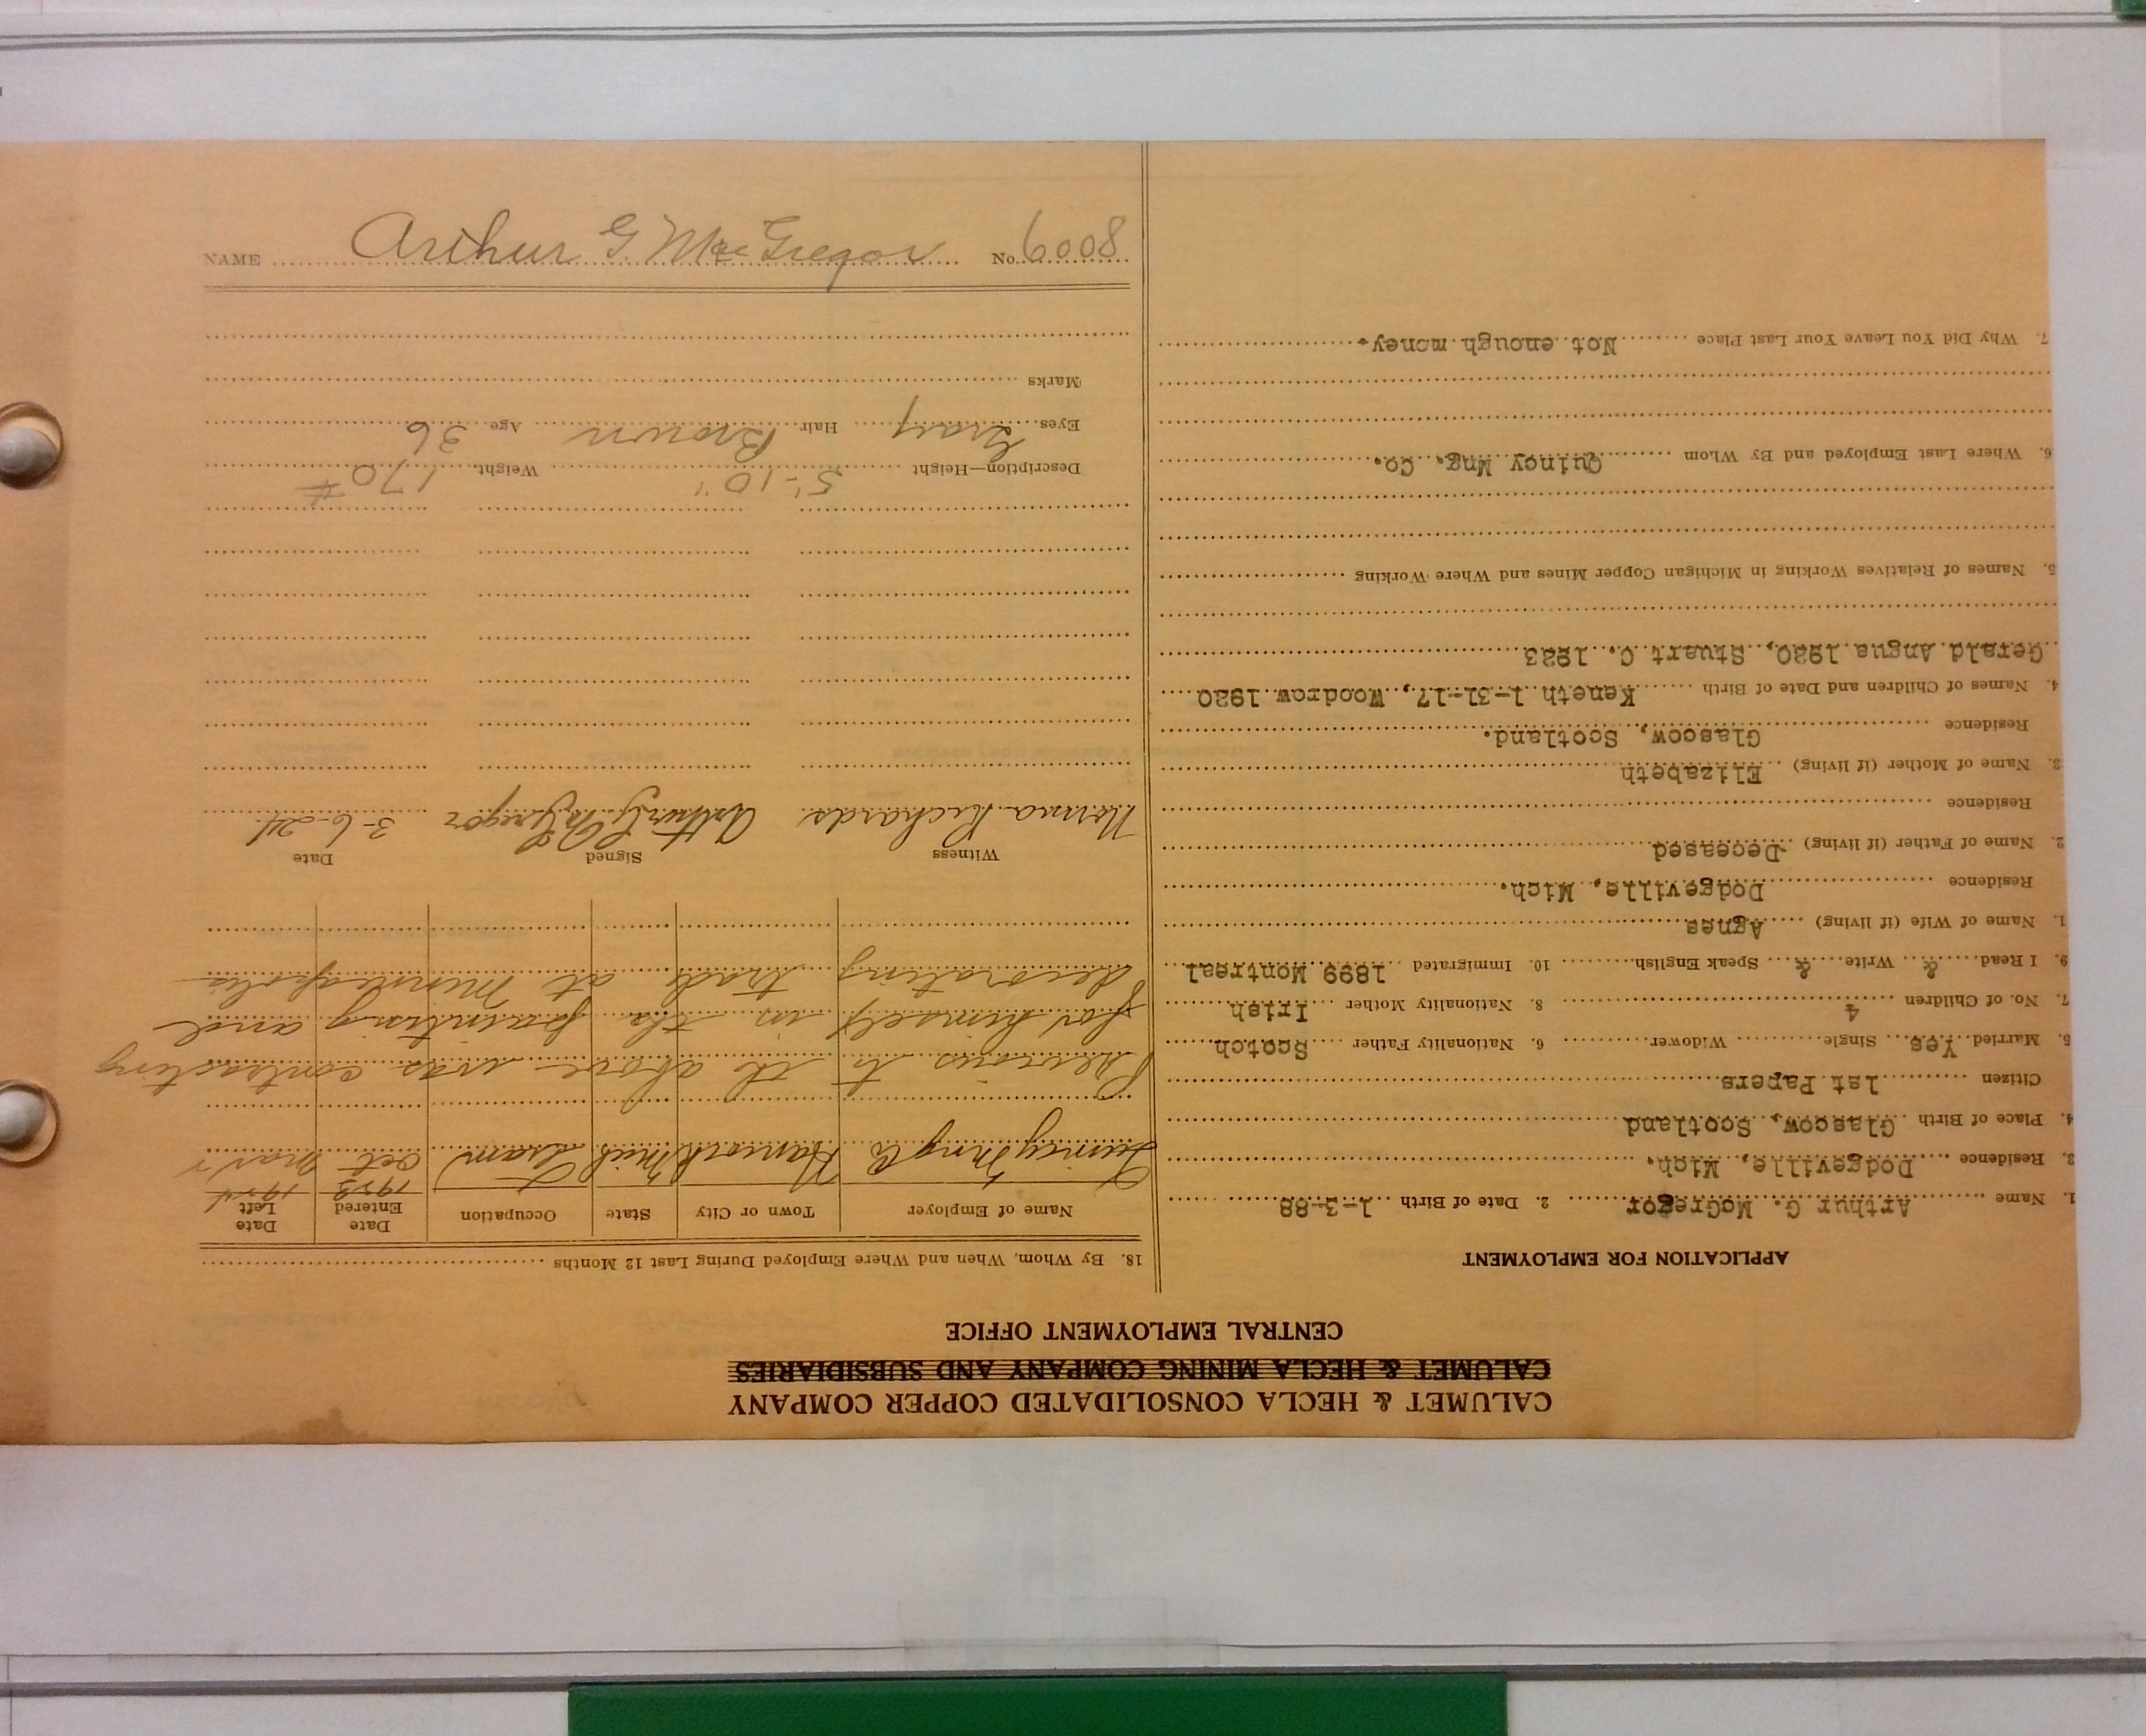 CALUMET & HECLA CONSOLIDATED COPPER COMPANY
CALUMET & HECLA MINING COMPANY AND SUBSIDIARIES
CENTRAL EMPLOYMENT OFFICE
APPLICATION FOR EMPLOYMENT
1. Name Arthur G. McGregor 2. Date of Birth 1-3-88
3. Residence Dodgeville, Mich.
4. Place of Birth Glascow, Scotland
Citizen 1st Papers
5. Married Yes Single Widower 6. Nationality Father Scotch
7. No. of Children 4 8. Nationality Mother Irish
9. I Read & Write & Speak English 10. Immigrated 1899 Montreal
1. Name of Wife (if living) Agnes
Residence Dodgeville, Mich.
2. Name of Father (if living) Deceased
Residence
3. Name of Mother (if living) Elizabeth
Residence Glascow, Scotland.
4. Names of Children and Date of Birth Keneth 1-31-17, Woodrow 1920
Gerald Angus 1920, Stuart C. 1923
5. Names of Relatives Working in Michigan Copper Mines and Where Working
6. Where Last Employed and By Whom Quincy Mng. Co.
7. Why Did You Leave Your Last Place Not enough money.
18. By Whom, When and Where Employed During Last 12 Months
Name of Employer Town or City State Occupation Date Entered Date Left
1923 1924
Quincy Mng Co Hancock Mich Tram Oct Mar
Previous to the above was contracting
for himself in the painting and
decorating trade at Minneapolis
Witness Signed Date
Norma Richards Arthur G. McGregor 3-6-24
Description—Height 5'-10" Weight 170#
Eyes Gray Hair Brown Age 36
Marks
NAME Arthur G. MacGregor No. 6008